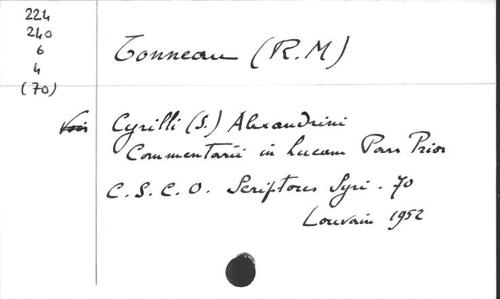 224
240
6
4
(70)
Tonneau (R.M)
Voir Cyrilli (S.) Alexandrini
Commentarii in Lucam Pars Prior
C.S.C.O. Scriptores Syri. 70
Louvain 1952